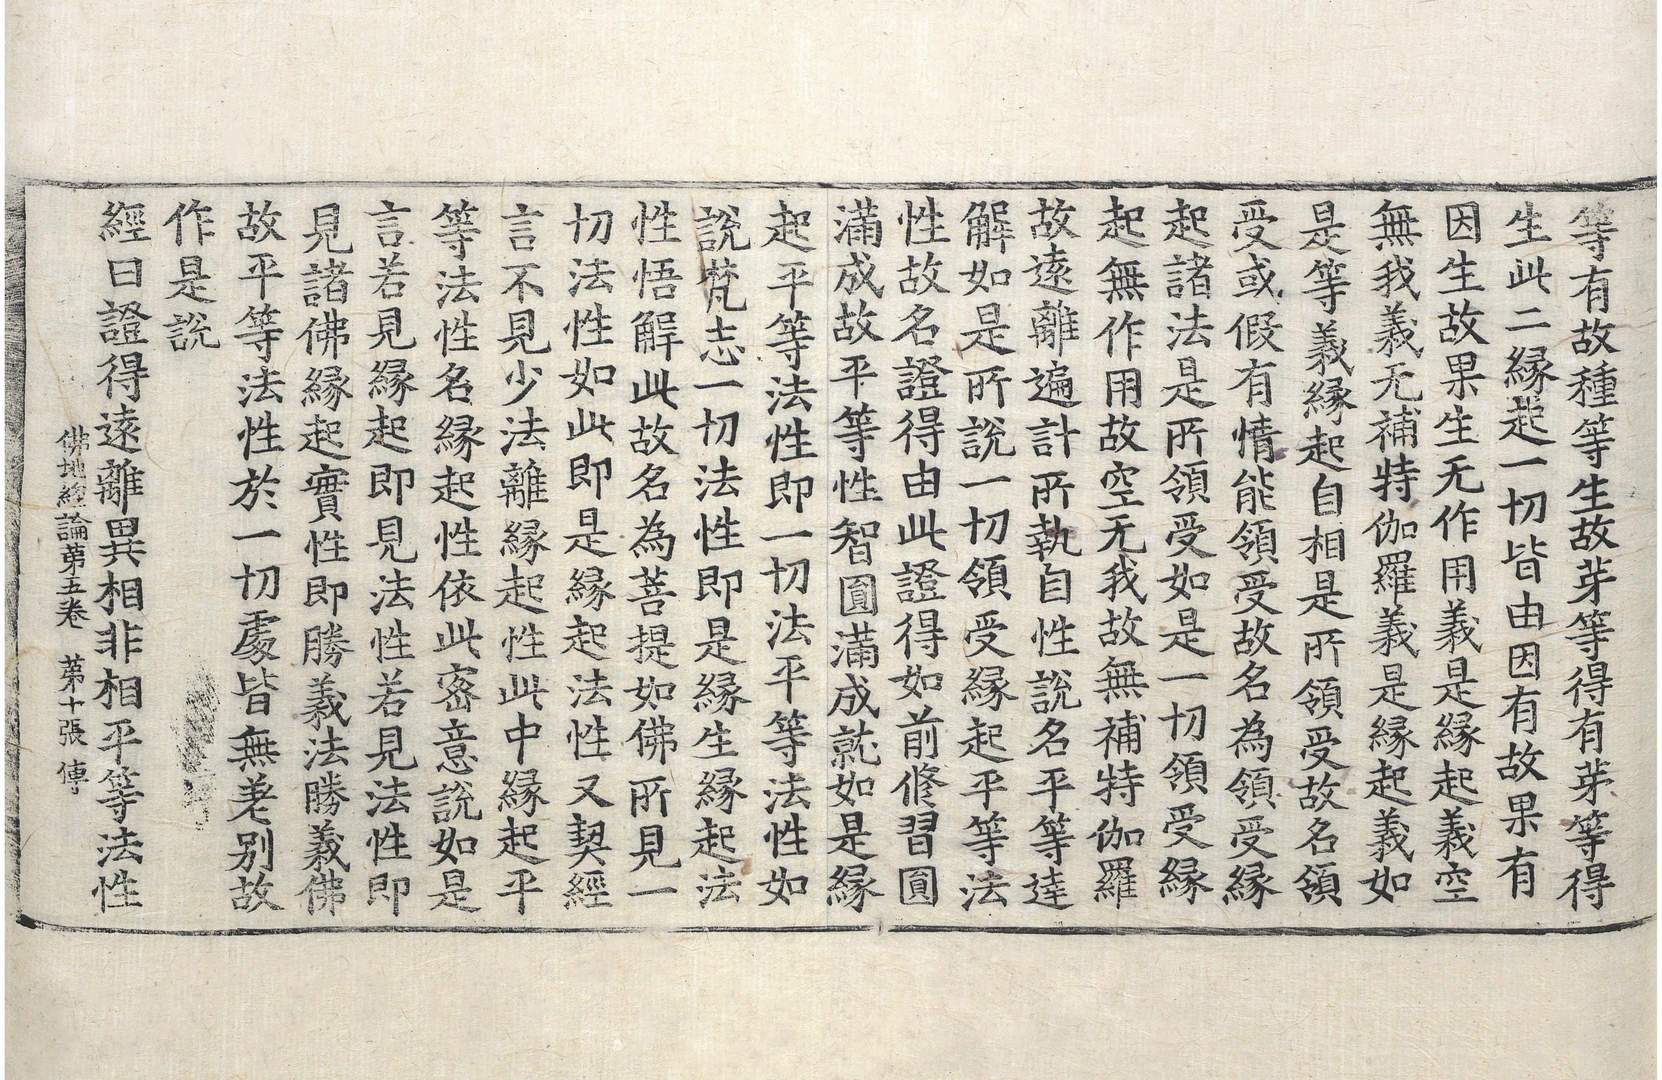 等有故種等生故芽等得有芽等得
生此二縁起一切皆由因有故果有
因生故果生无作用義是縁起義空
無我義无補特伽羅義是縁起義如
是等義縁起自相是所領受故名領
受或假有情能領受故名為領受縁
起諸法是所領受如是一切領受縁
起無作用故空无我故無補特伽羅
故遠離遍計所執自性說名平等達
解如是所說一切領受縁起平等法
性故名證得由此證得如前修習圓
滿成故平等性智圓滿成就如是縁
起平等法性即一切法平等法性如
說梵志一切法性即是縁生縁起法
性悟解此故名為菩提如佛所見一
切法性如此即是縁起法性又契經
言不見少法離縁起性此中縁起平
等法性名縁起性依此密意說如是
言若見縁起即見法性若見法性即
見諸佛縁起實性即勝義法勝義佛
故平等法性於一切處皆無差別故
作是說
經曰證得遠離異相非相平等法性
佛地經論苐五卷 苐十張 傳